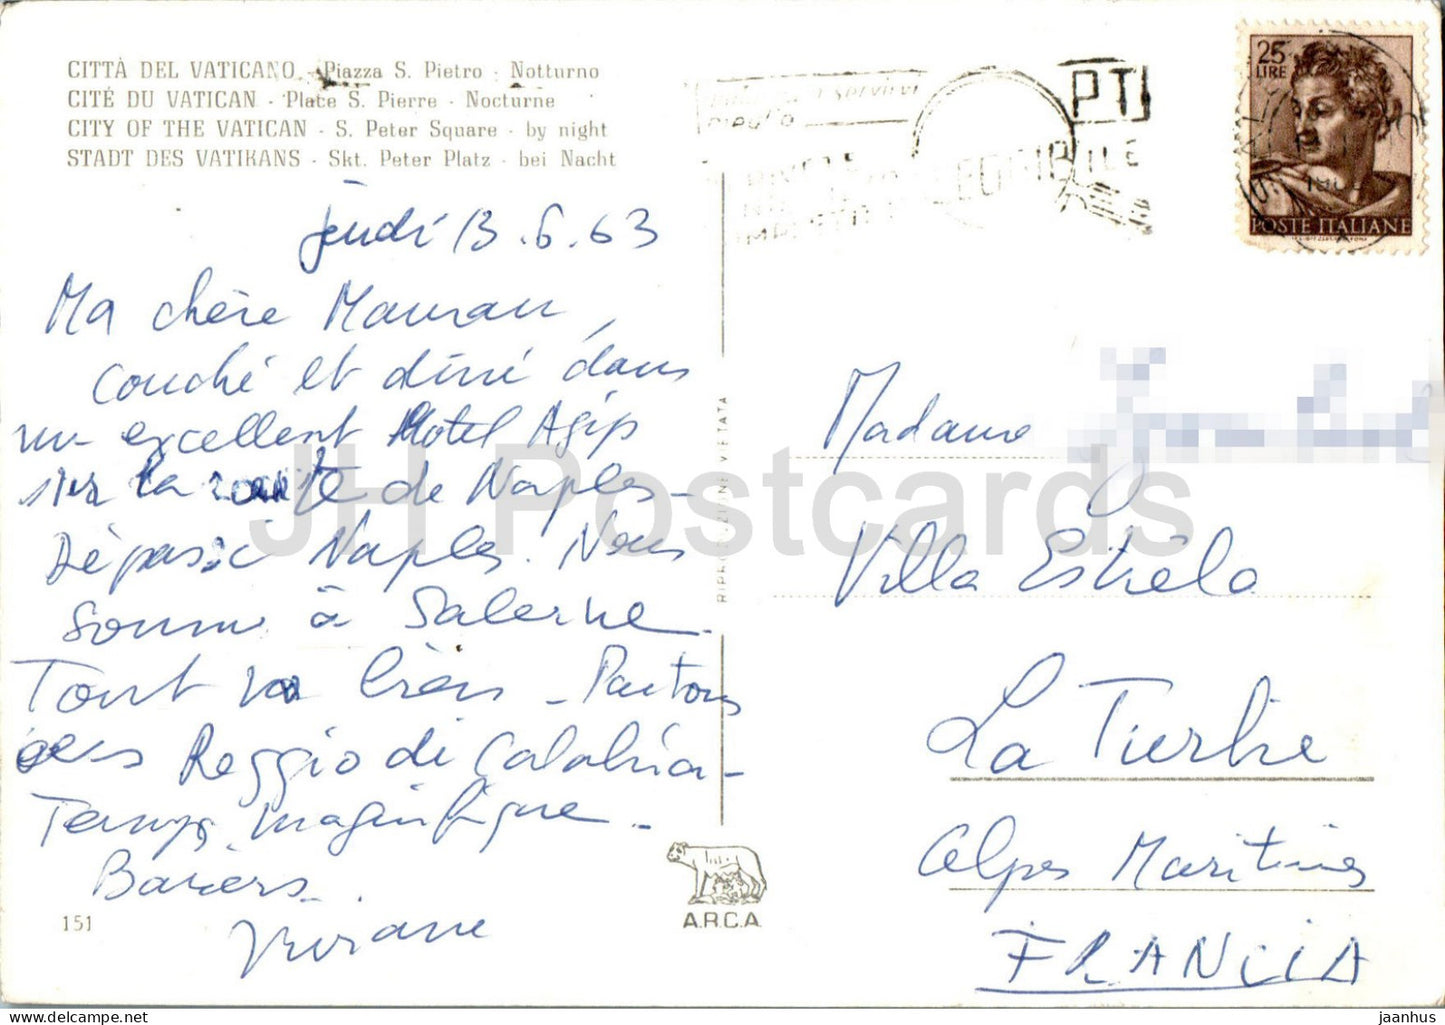 CITTÀ DEL VATICANO - Piazza S. Pietro - Notturno
CITÉ DU VATICAN - Place S. Pierre - Nocturne
CITY OF THE VATICAN - S. Peter Square - by night
STADT DES VATIKANS - Skt. Peter Platz - bei Nacht
PTT
25
LIRE
POSTE ITALIANE
Jeudi 13.6.63
Ma chère Maman,
couché et dîné dans
un excellent Motel Agip
sur la route de Naples -
Dépassé Naples. Nous
sommes à Salerne.
Tout va bien - Partons
vers Reggio di Calabria -
Temps magnifique -
Baisers.
Viviane
151
RIPRODUZIONE VIETATA
A.R.C.A.
Madame
Villa Estrêla
La Turbie
Alpes Maritimes
FRANCIA
JH Postcards
jaanhus www.delcampe.net